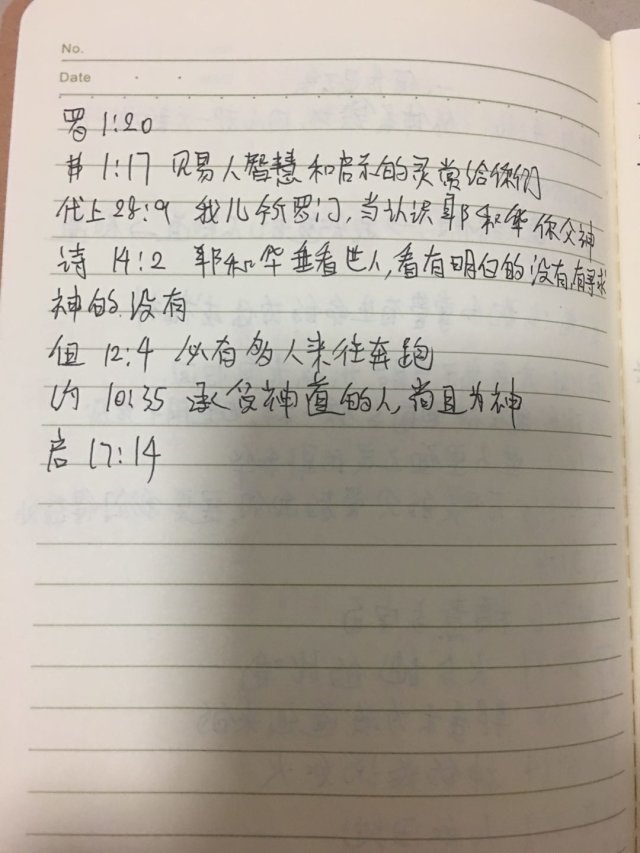 No.
Date
罗 1:20
弗 1:17 贝易人智慧和启示的灵赏给你们
代上 28:9 我儿所罗门,当认识耶和华你父神
诗 14:2 耶和华垂看世人,看有明白的没有,有寻求
神的没有
但 12:4 必有多人来往奔跑
约 10:35 承受神道的人,尚且为神
启 17:14